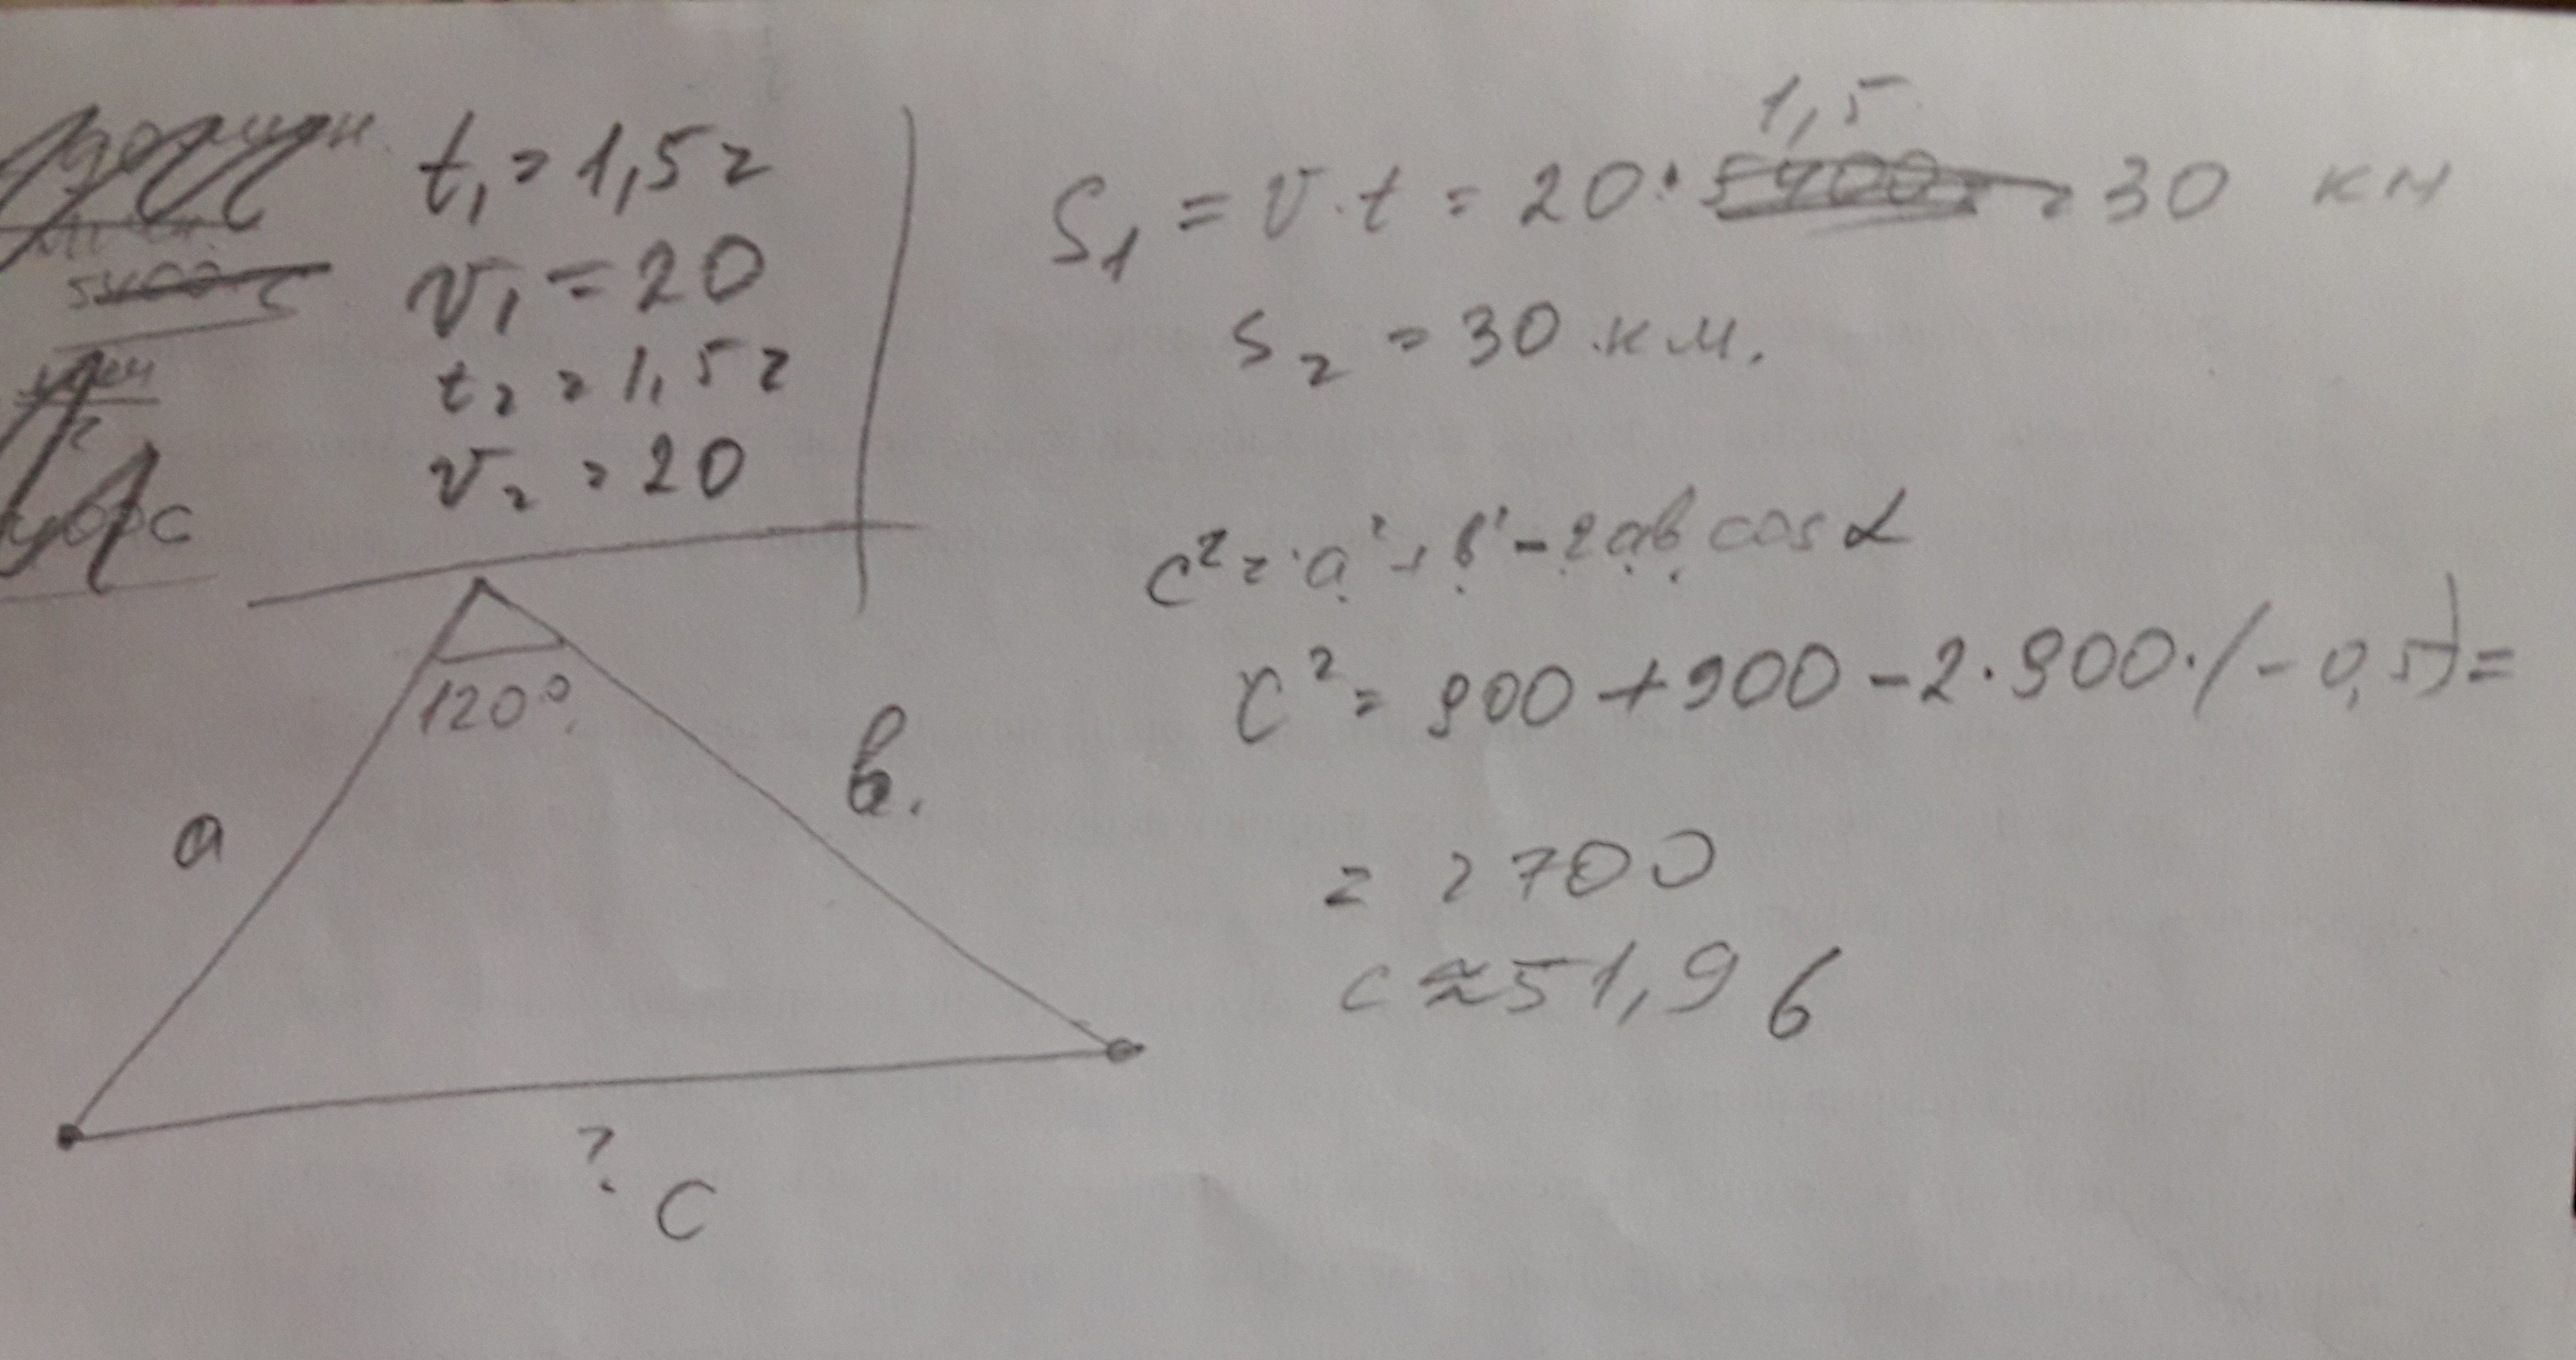 t₁ = 1,5 г
v₁ = 20
t₂ = 1,5 г
v₂ = 20
1,5
S₁ = v · t = 20 · = 30 км
S₂ = 30 км.
c² = a² + b² - 2ab cos α
c² = 900 + 900 - 2 · 900 · (-0,5) =
= 2700
c ≈ 51,96
120°
a
b.
?
c